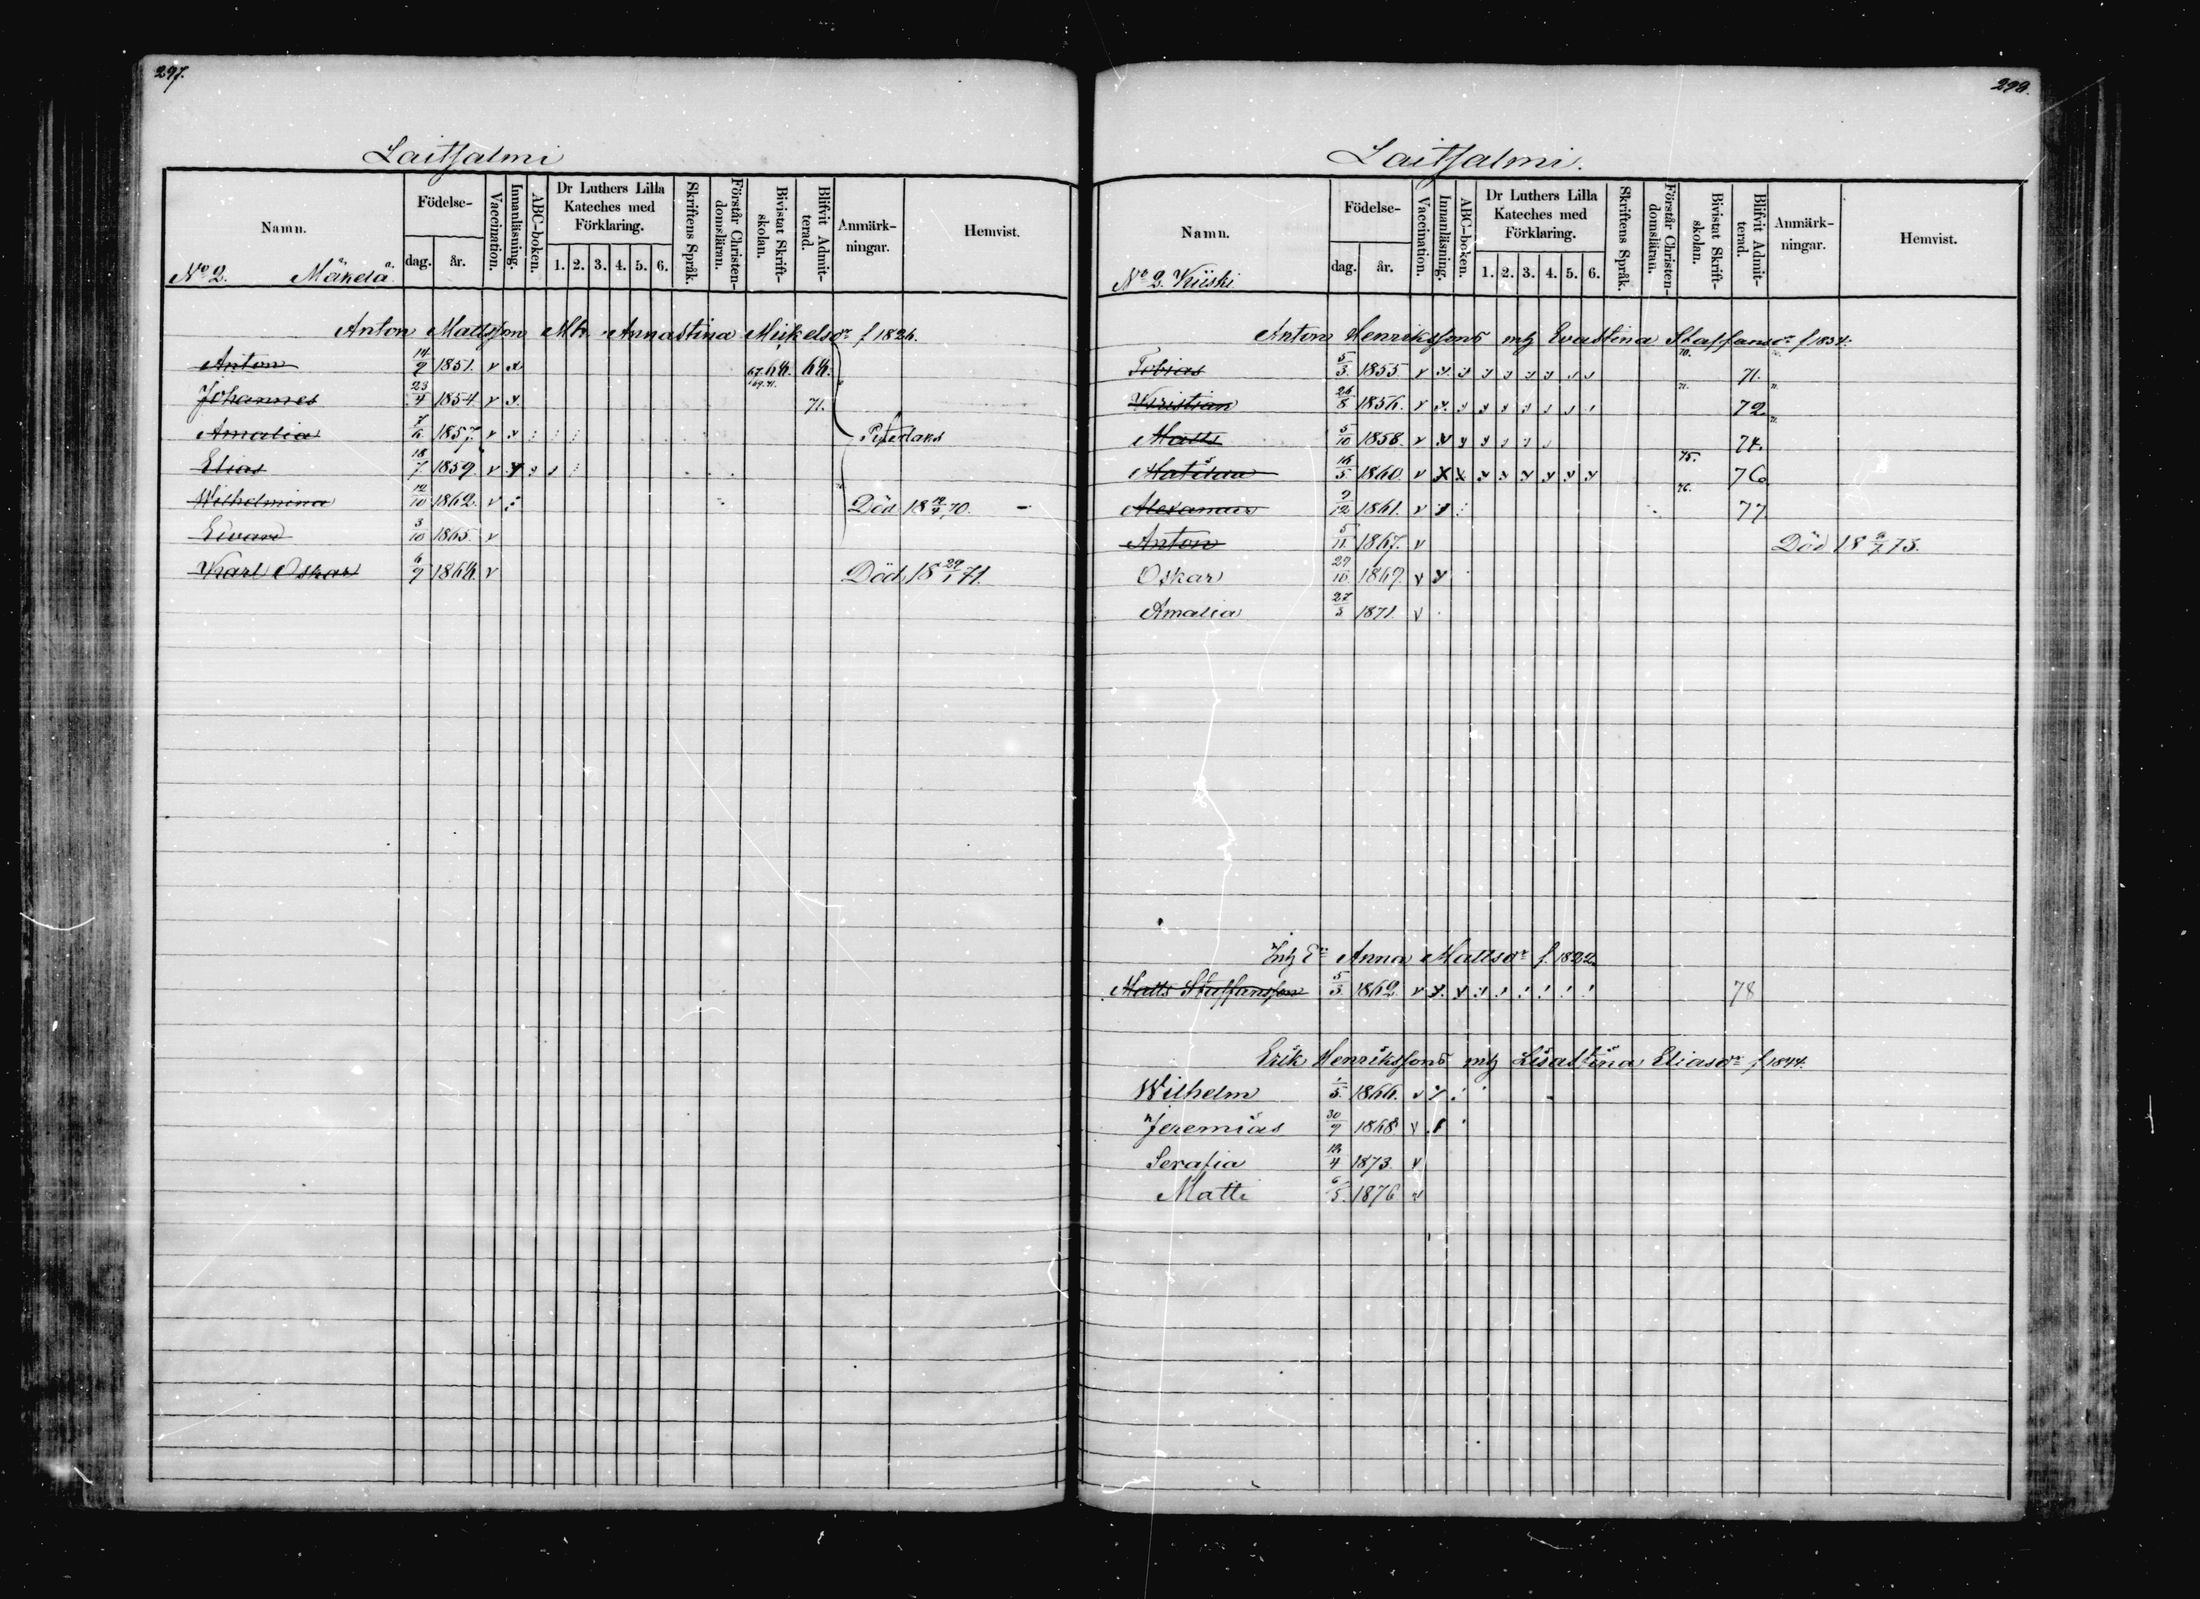 297.
Laitsalmi
Namn. Födelse- dag. år. Vaccination. Innanläsning. ABC-boken. Dr Luthers Lilla Kateches med Förklaring. 1. 2. 3. 4. 5. 6. Skriftens Språk. Förstår Christen-domsläran. Bivistat Skrift-skolan. Blifvit Admit-terad. Anmärk-ningar. Hemvist.
No 2. Mäkelä.
Anton Mattsson Annastina Mickelsdr f 1826.
Anton 14/9 1851. v 67. 68. 68.
Johannes 23/4 1854 v 69. 71. 71.
Amalia 7/6 1857. v
Elias 18/7 1859. v
Wilhelmina 12/10 1862. v Död 18 70.
Edvard 3/10 1865. v
Karl Oskar 6/9 1868. v Död 18 29/1 71.
298.
Laitsalmi.
Namn. Födelse- dag. år. Vaccination. Innanläsning. ABC-boken. Dr Luthers Lilla Kateches med Förklaring. 1. 2. 3. 4. 5. 6. Skriftens Språk. Förstår Christen-domsläran. Bivistat Skrift-skolan. Blifvit Admit-terad. Anmärk-ningar. Hemvist.
No 2. Kiiski
Anton Henrikssons Evastina Staffansdr f 1834.
Tobias 5/3 1855 v 70. 71.
Kristian 26/8 1856. v 71. 72.
Matts 5/10 1858. v 74.
Matilda 16/5 1860. v 75. 76
Alexander 9/12 1861. v 76. 77
Anton 5/11 1867. v Död 18 73.
Oskar 29/10 1869. v
Amalia 27/5 1871. v
Anna Mattsdr f. 1822.
Matts Staffansson 5/3 1862 v 78
Erik Henrikssons Lisastina Eliasdr f 1844.
Wilhelm 1/5. 1866. v
Jeremias 30/9 1868 v
Serafia 12/4 1873. v
Matti 6/5. 1876 v